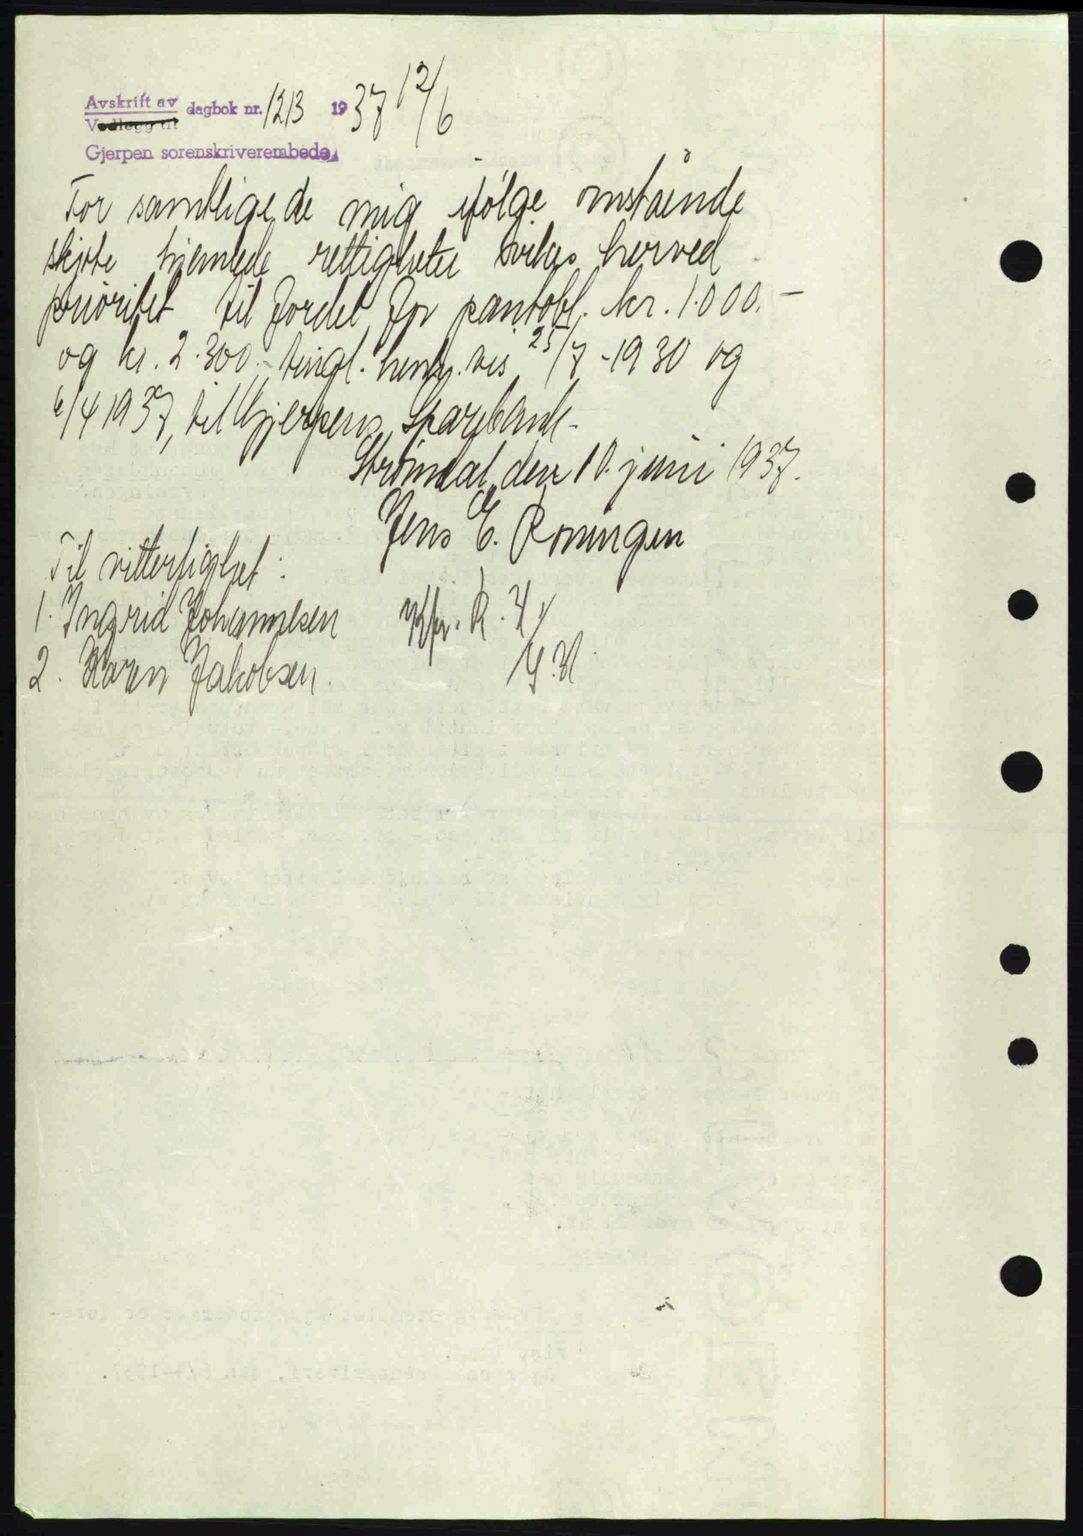 Avskrift av dagbok nr. 1213 1937 12/6
Vedlegg til
Gjerpen sorenskriverembede
For samtlige de mig ifølge omstående
skjøte hjemlede rettigheter vikes herved
prioritet til fordel for pantobl. kr. 1.000.–
og kr. 2.300.– tingl. henh.vis 25/7-1930 og
6/4 1937, til Gjerpens Sparebank.
Strømdal, den 10. juni 1937.
Jens E. Roningen
Til vitterlighet:
1. Ingrid Johannesen
2. Karen Jakobsen.